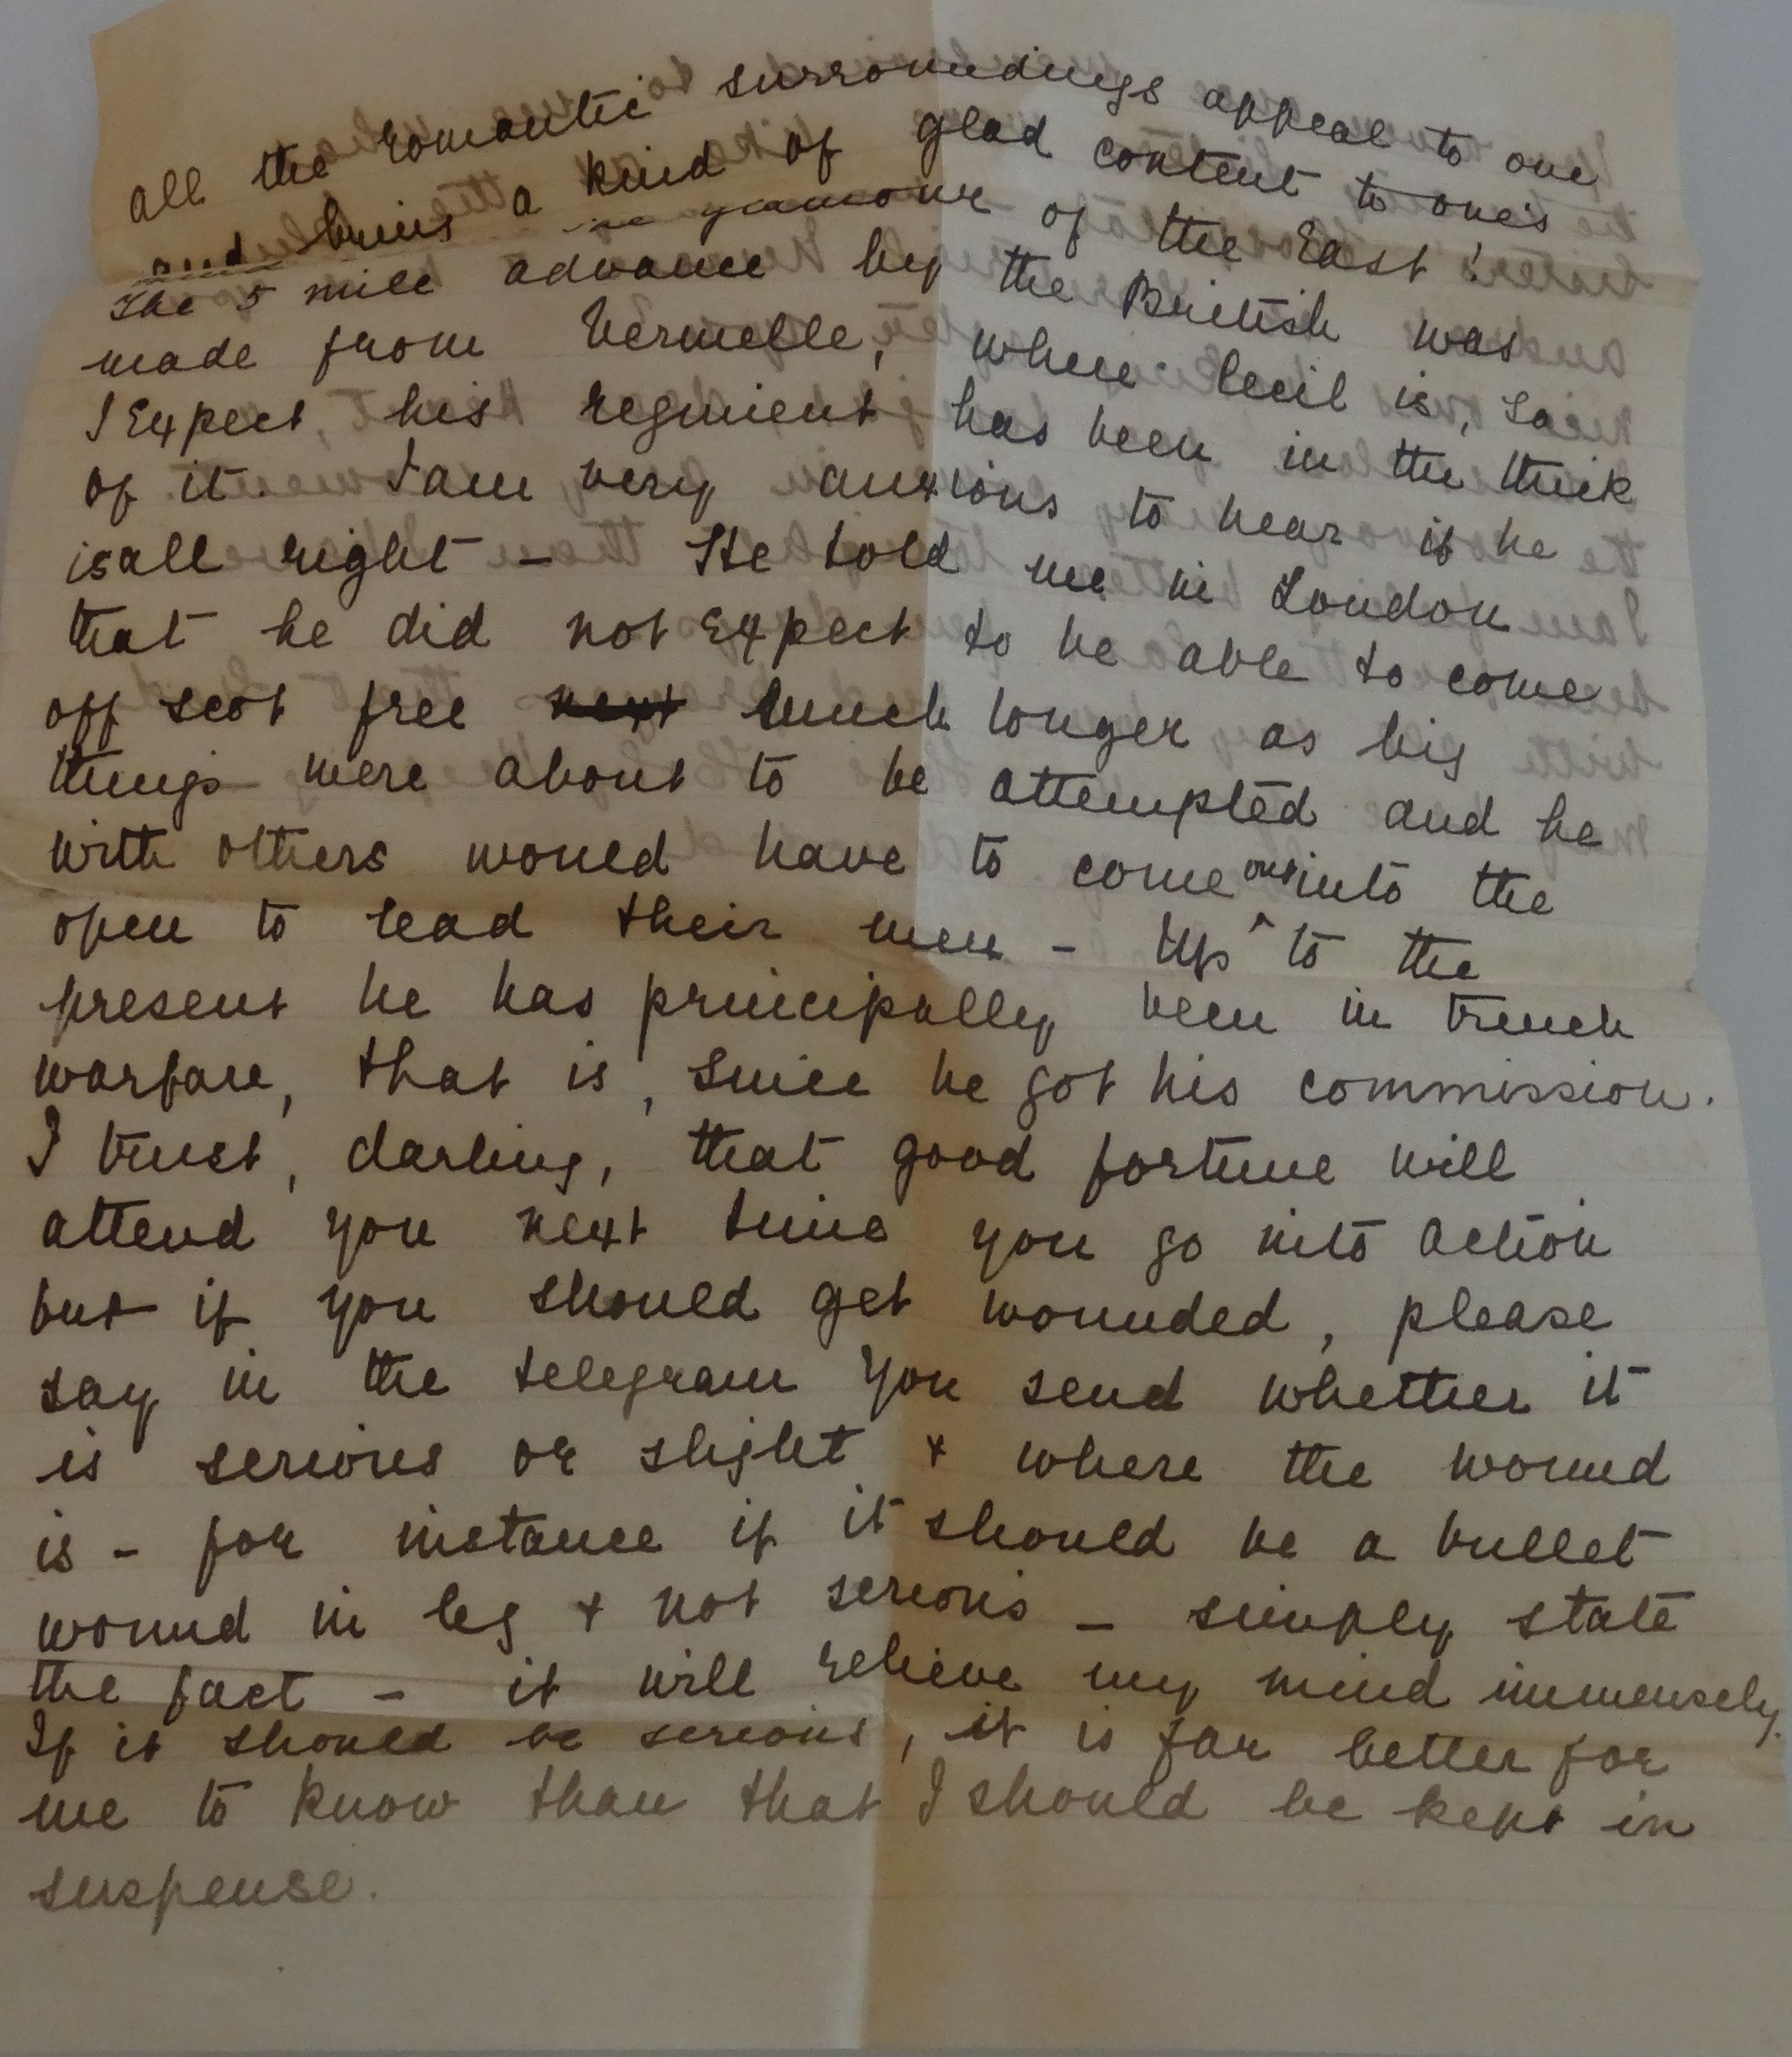 all the romantic surroundings appeal to one
and a kind of glad content to one's
glamour of the East!
The 5 mile advance by the British was
made from Vermelle, where Cecil is, so
I Expect his regiment has been in the thick
of it. I am very anxious to hear if he
is all right - He told me in London
that he did not Expect to be able to come
off scot free next much longer as big
things were about to be attempted and he
with others would have to come out into the
open to lead their men - Up to the
present he has principally been in trench
warfare, that is, since he got his commission.
I trust, darling, that good fortune will
attend you next time you go into action
but if you should get wounded, please
say in the telegram you send whether it
is serious or slight & where the wound
is - for instance if it should be a bullet
wound in leg & not serious - simply state
the fact - it will relieve my mind immensely.
If it should be serious, it is far better for
me to know than that I should be kept in
suspense.